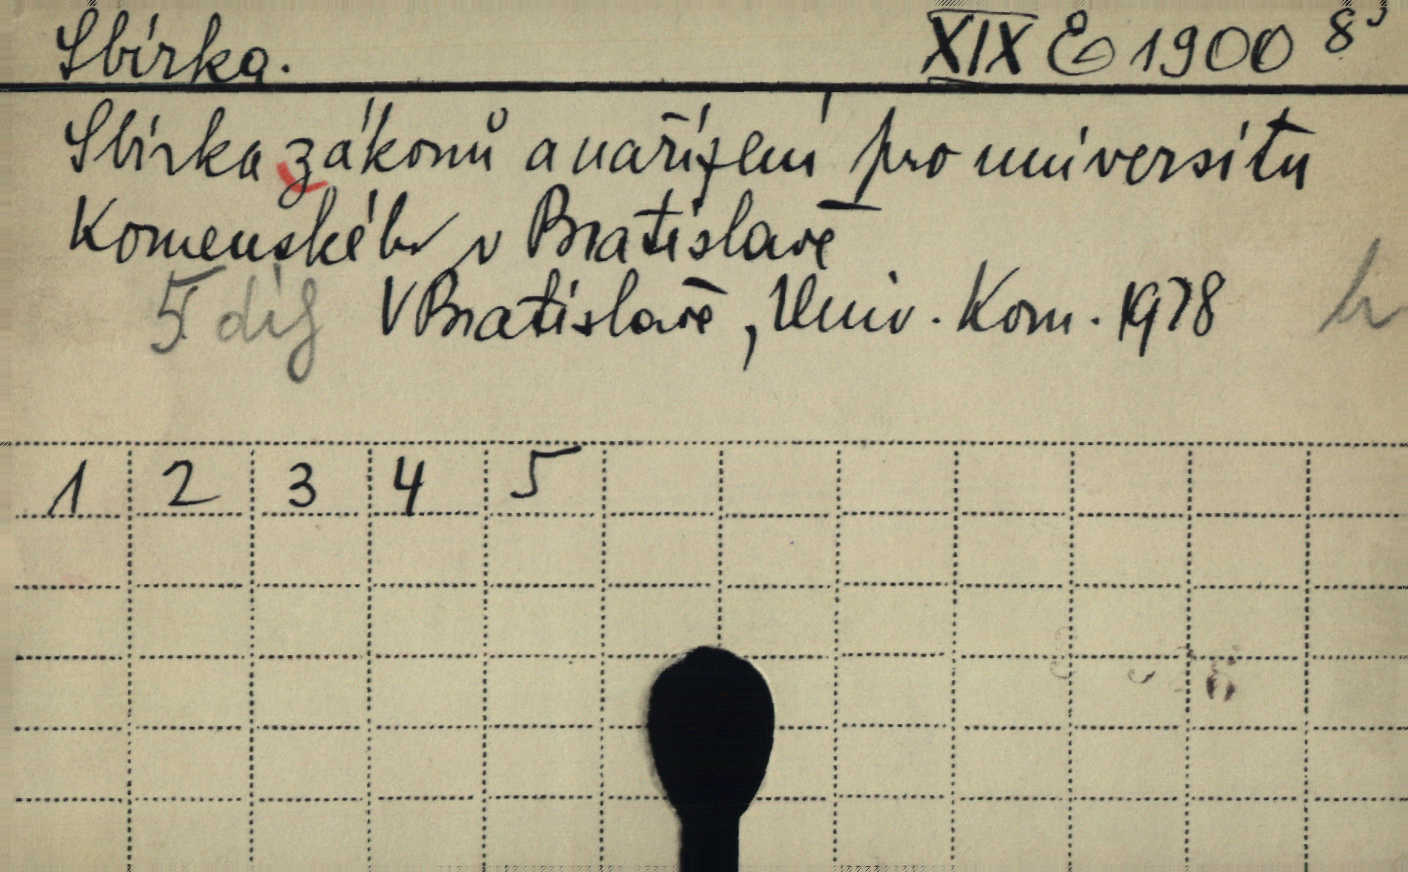 Sbírka. XIX E 1900 8°
Sbírka zákonů a nařízení pro universitu
Komenského v Bratislavě
5 V Bratislavě, Univ. Kom. 1978
1 2 3 4 5